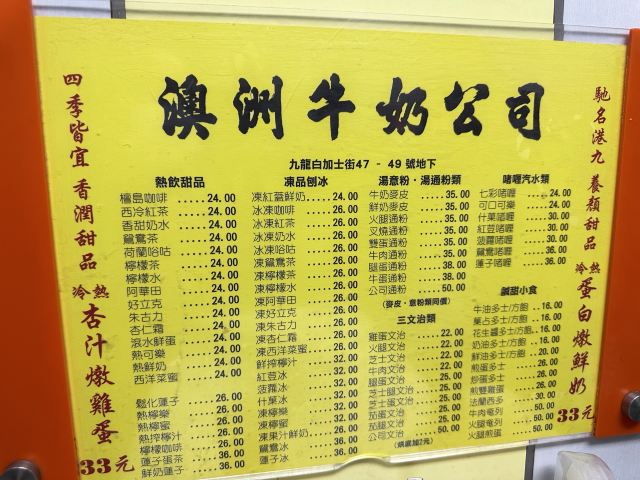 澳洲牛奶公司
九龍白加士街47 - 49 號地下
四季皆宜 香潤甜品
冷熱 杏汁燉雞蛋
33元
熱飲甜品
檀島咖啡 .....24.00
西冷紅茶 .....24.00
香甜奶水 .....24.00
鴛鴦茶 .....24.00
荷蘭哈咕 .....24.00
檸檬茶 .....24.00
檸檬水 .....24.00
阿華田 .....24.00
好立克 .....24.00
朱古力 .....24.00
杏仁霜 .....24.00
滾水鮮蛋 .....24.00
熱可樂 .....24.00
熱鮮奶 .....24.00
西洋菜蜜 .....24.00
鬆化蓮子 .....26.00
熱檸樂 .....26.00
熱檸蜜 .....26.00
熱檸檸汁 .....26.00
檸檬咖啡 .....26.00
蓮子蛋茶 .....36.00
鮮奶蓮子 .....36.00
凍品刨冰
凍紅藍鮮奶 .....24.00
冰凍咖啡 .....26.00
冰凍紅茶 .....26.00
冰凍奶水 .....26.00
凍鴛鴦 .....26.00
冰凍哈咕 .....26.00
凍檸檬茶 .....26.00
凍檸檬水 .....26.00
凍阿華田 .....26.00
凍好立克 .....26.00
凍朱古力 .....26.00
凍杏仁霜 .....26.00
凍西洋菜蜜 .....26.00
鮮搾檸汁 .....32.00
紅荳冰 .....32.00
菠蘿冰 .....32.00
什菓冰 .....32.00
凍檸樂 .....32.00
凍檸蜜 .....32.00
凍菓汁鮮奶 .....36.00
鴛鴦冰 .....36.00
蓮子冰 .....36.00
湯意粉‧湯通粉類
牛奶麥皮 .....35.00
鮮奶麥皮 .....35.00
火腿通粉 .....35.00
叉燒通粉 .....35.00
雙蛋通粉 .....35.00
牛肉通粉 .....35.00
腿蛋通粉 .....38.00
牛蛋通粉 .....38.00
公司通粉 .....50.00
(麥皮‧意粉類同價)
三文治類
雞蛋文治 .....22.00
火腿文治 .....22.00
芝士文治 .....22.00
牛肉文治 .....22.00
腿蛋文治 .....25.00
芝士腿文治 .....25.00
芝士蛋文治 .....25.00
茄蛋文治 .....25.00
茄腿文治 .....25.00
公司文治 .....50.00
(烘底加2元)
啫喱汽水類
七彩啫喱 .....24.00
可口可樂 .....24.00
什菓啫喱 .....30.00
紅荳啫喱 .....30.00
菠蘿啫喱 .....30.00
鴛鴦啫喱 .....36.00
蓮子啫喱 .....36.00
鹹甜小食
牛油多士/方飽 ...16.00
菓占多士/方飽 ...16.00
花生醬多士/方飽 ...16.00
奶油多士/方飽 ...16.00
鮮油多士/方飽 ...20.00
煎蛋多士 .....36.00
炒蛋多士 .....36.00
煎雙雞蛋 .....26.00
法蘭西多 .....30.00
牛肉奄列 .....50.00
火腿奄列 .....50.00
火腿煎蛋 .....50.00
馳名港九 養顏甜品
冷熱 蛋白燉鮮奶
33元